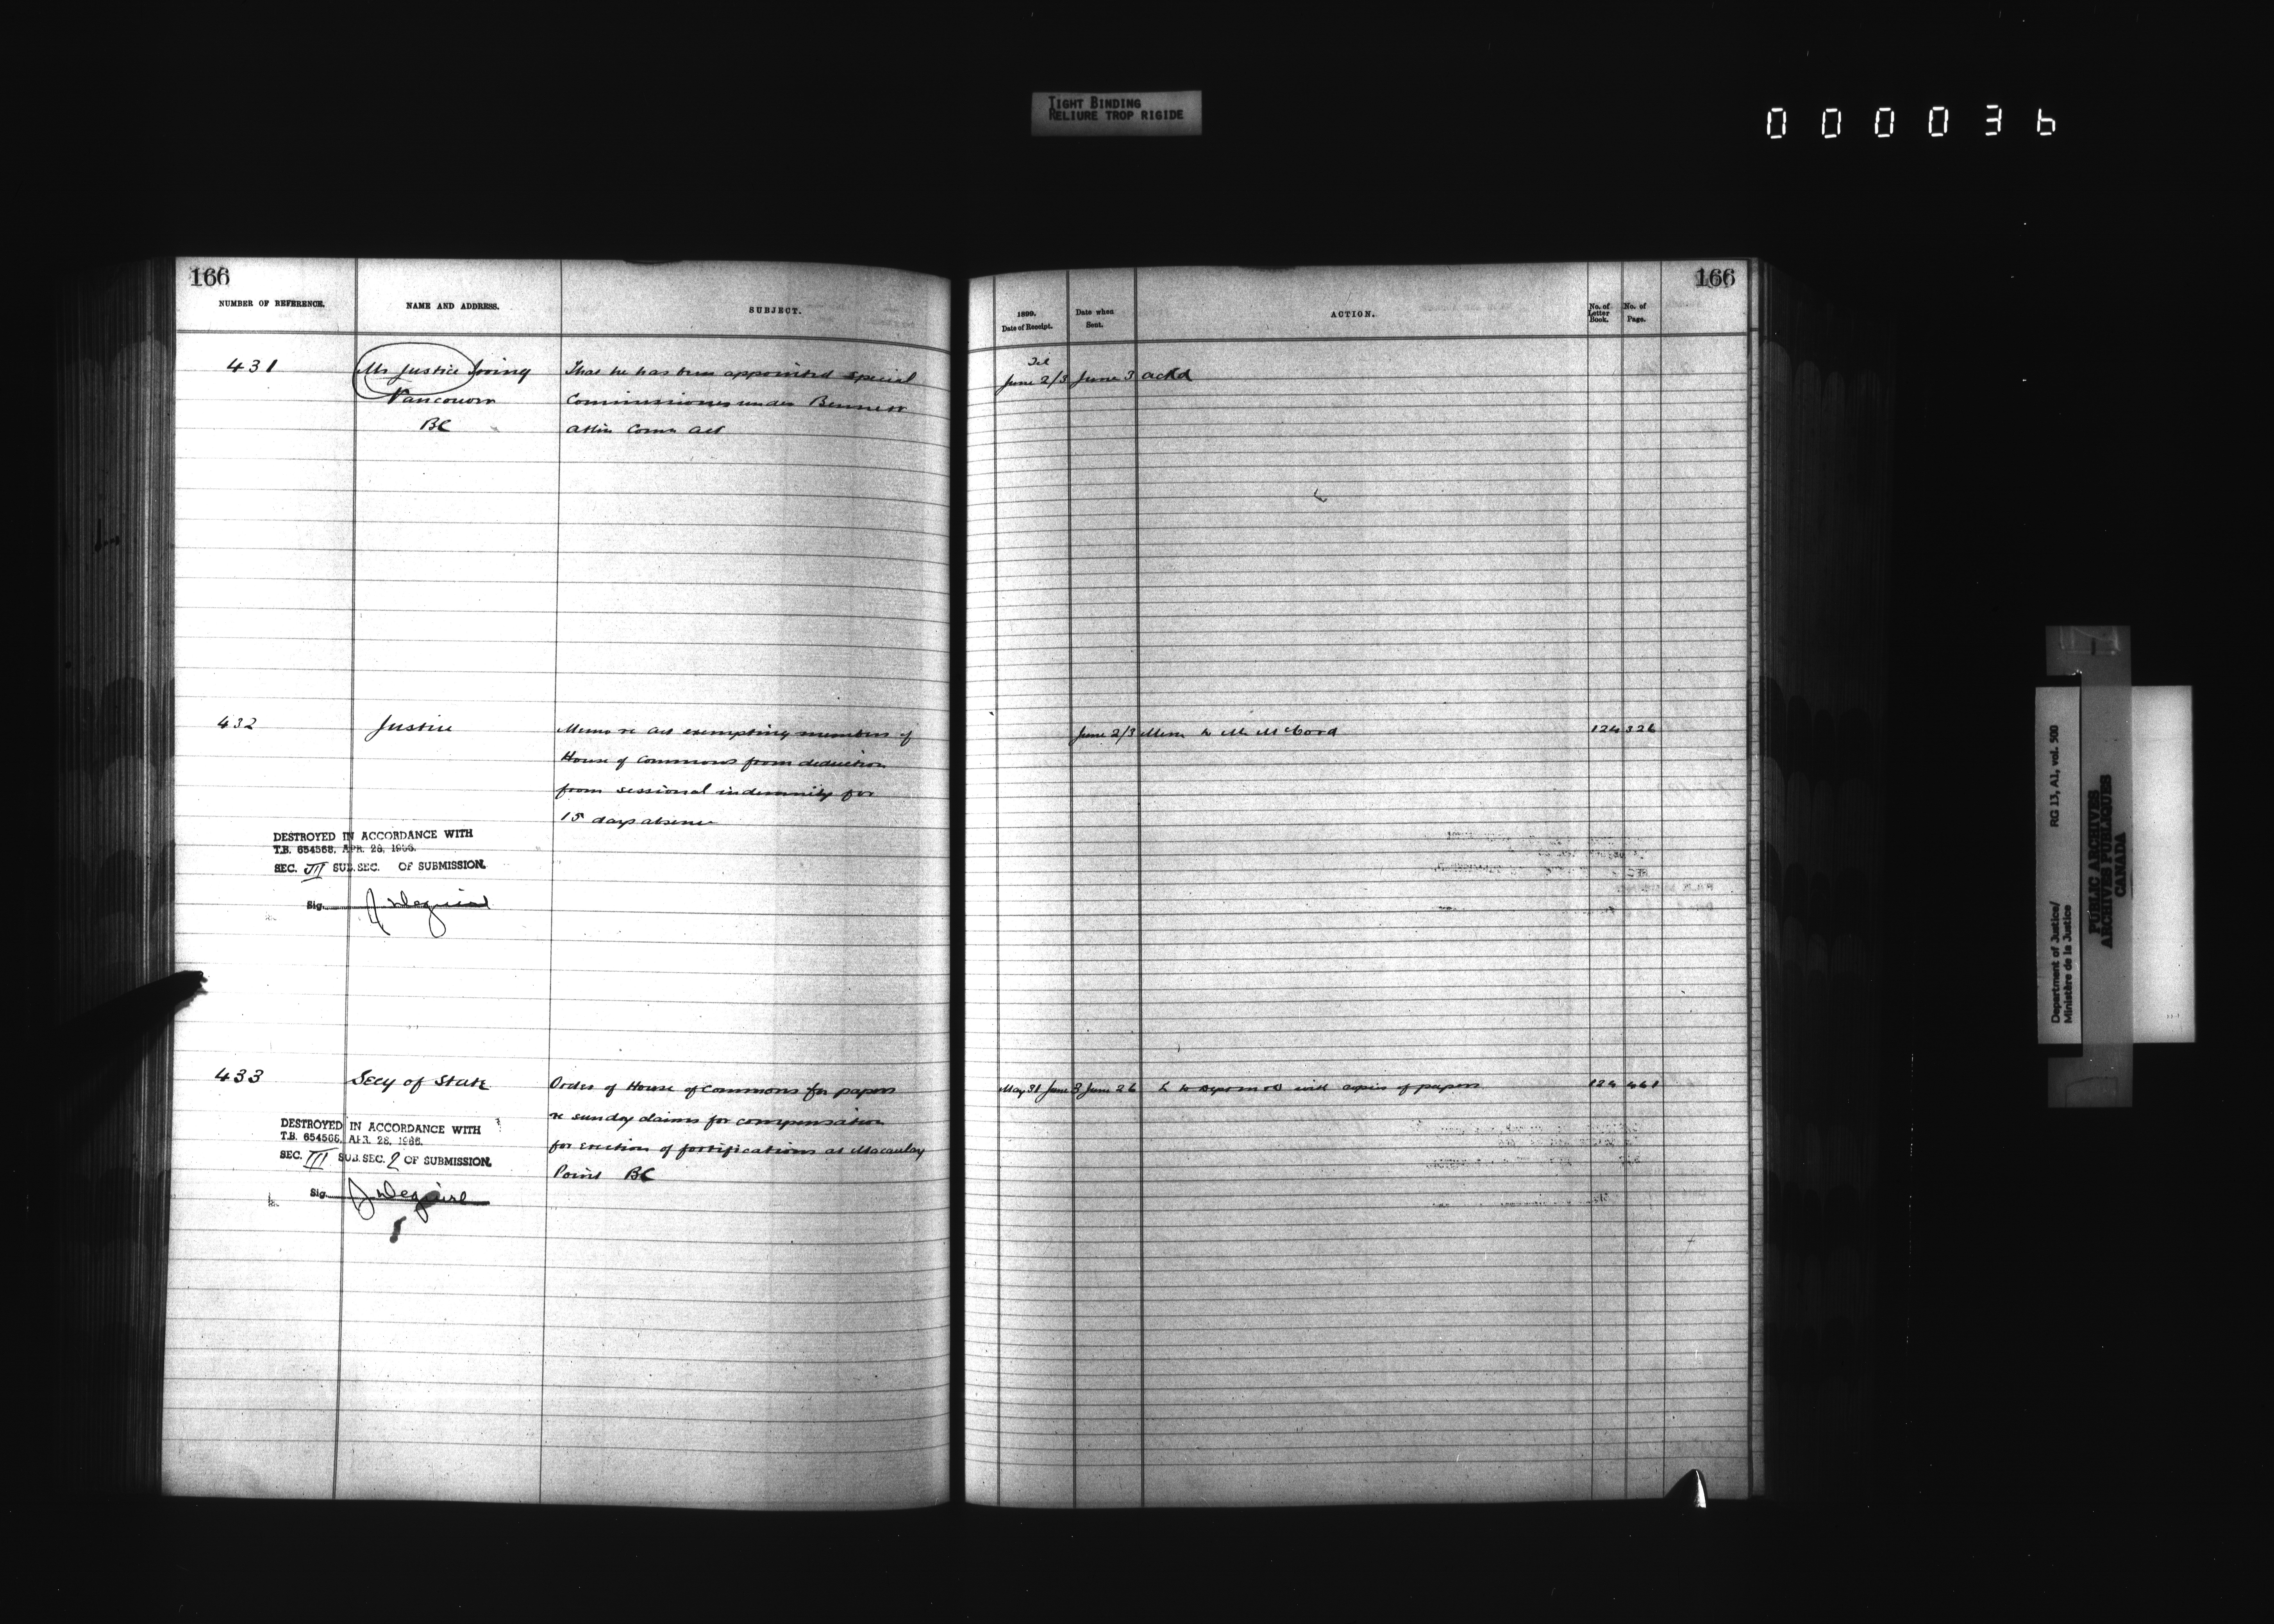 TIGHT BINDING
RELIURE TROP RIGIDE
000036
166
NUMBER OF REFERENCE.
NAME AND ADDRESS.
SUBJECT.
431
Mr Justice Irving
Vancouver
BC
That he has been appointed special
Commissioner under Bennett
Atlin Comn Act
432
Justice
Memo re Act exempting members of
House of Commons from deduction
from sessional indemnity for
15 days absence
DESTROYED IN ACCORDANCE WITH
T.B. 654566, APR. 28, 1966.
SEC. III SUB.SEC. OF SUBMISSION.
Sig.
433
Secy of State
Order of House of Commons for papers
re sunday claims for compensation
for erection of fortifications at Macaulay
Point BC
DESTROYED IN ACCORDANCE WITH
T.B. 654566, APR. 28, 1966.
SEC. III SUB.SEC. 2 OF SUBMISSION.
Sig.
166
1899.
Date of Receipt.
Date when
Sent.
ACTION.
No. of
Letter
Book.
No. of
Page.
Tel
June 2/3 June 3 ackd
June 2/3 Mem to Mr McCord 124 326
May 31 June 3 June 26 L to with copies of papers 124 461
Department of Justice/ RG 13, A1, vol. 500
Ministère de la Justice
PUBLIC ARCHIVES
ARCHIVES PUBLIQUES
CANADA